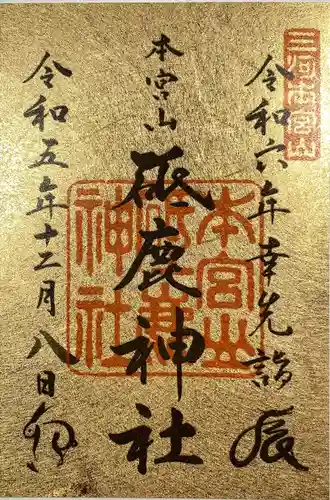 三河本宮山
令和六年幸先詣
辰
本宮山
砥鹿神社
本宮山
砥鹿神社
令和五年十二月八日